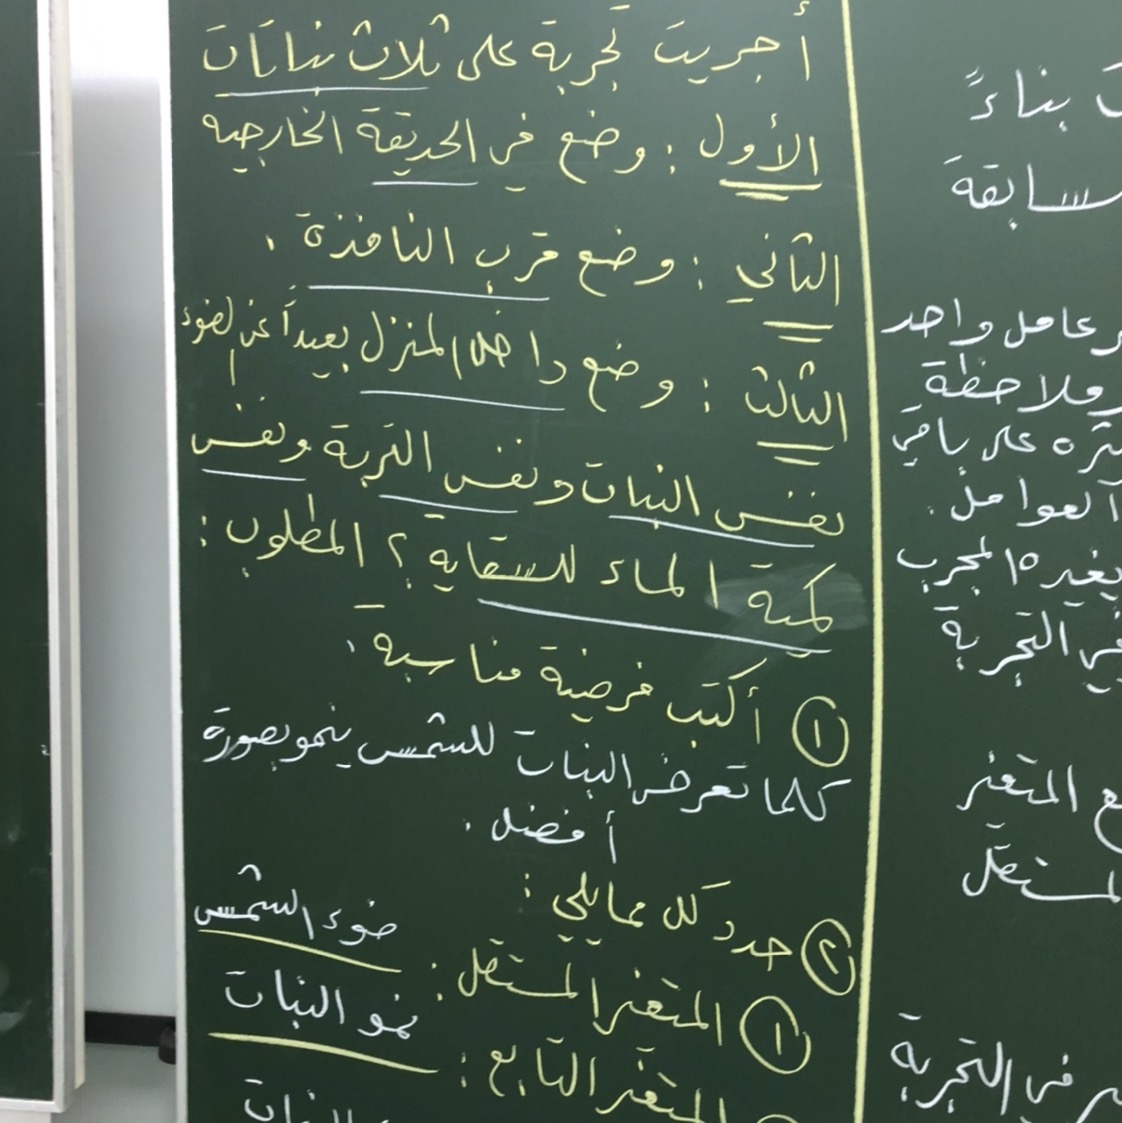 أجريت تجربة على ثلاث نباتات
الأول : وضع في الحديقة الخارجية
الثاني : وضع قرب النافذة .
الثالث : وضع داخل المنزل بعيداً عن الضوء
نفس النبات ونفس التربة ونفس
كمية الماء للسقاية ؟ المطلوب :
① أكتب فرضية مناسبة .
كلما تعرض النبات للشمس ينمو بصورة
أفضل .
② حدد كل مما يلي :
① المتغير المستقل : ضوء الشمس
المتغير التابع : نمو النبات
النبات
بناءً
سابقة
عامل واحد
وملاحظة
على باقي
العوامل .
يغيره المجرب
في التجربة
المتغير
المستقل
في التجربة